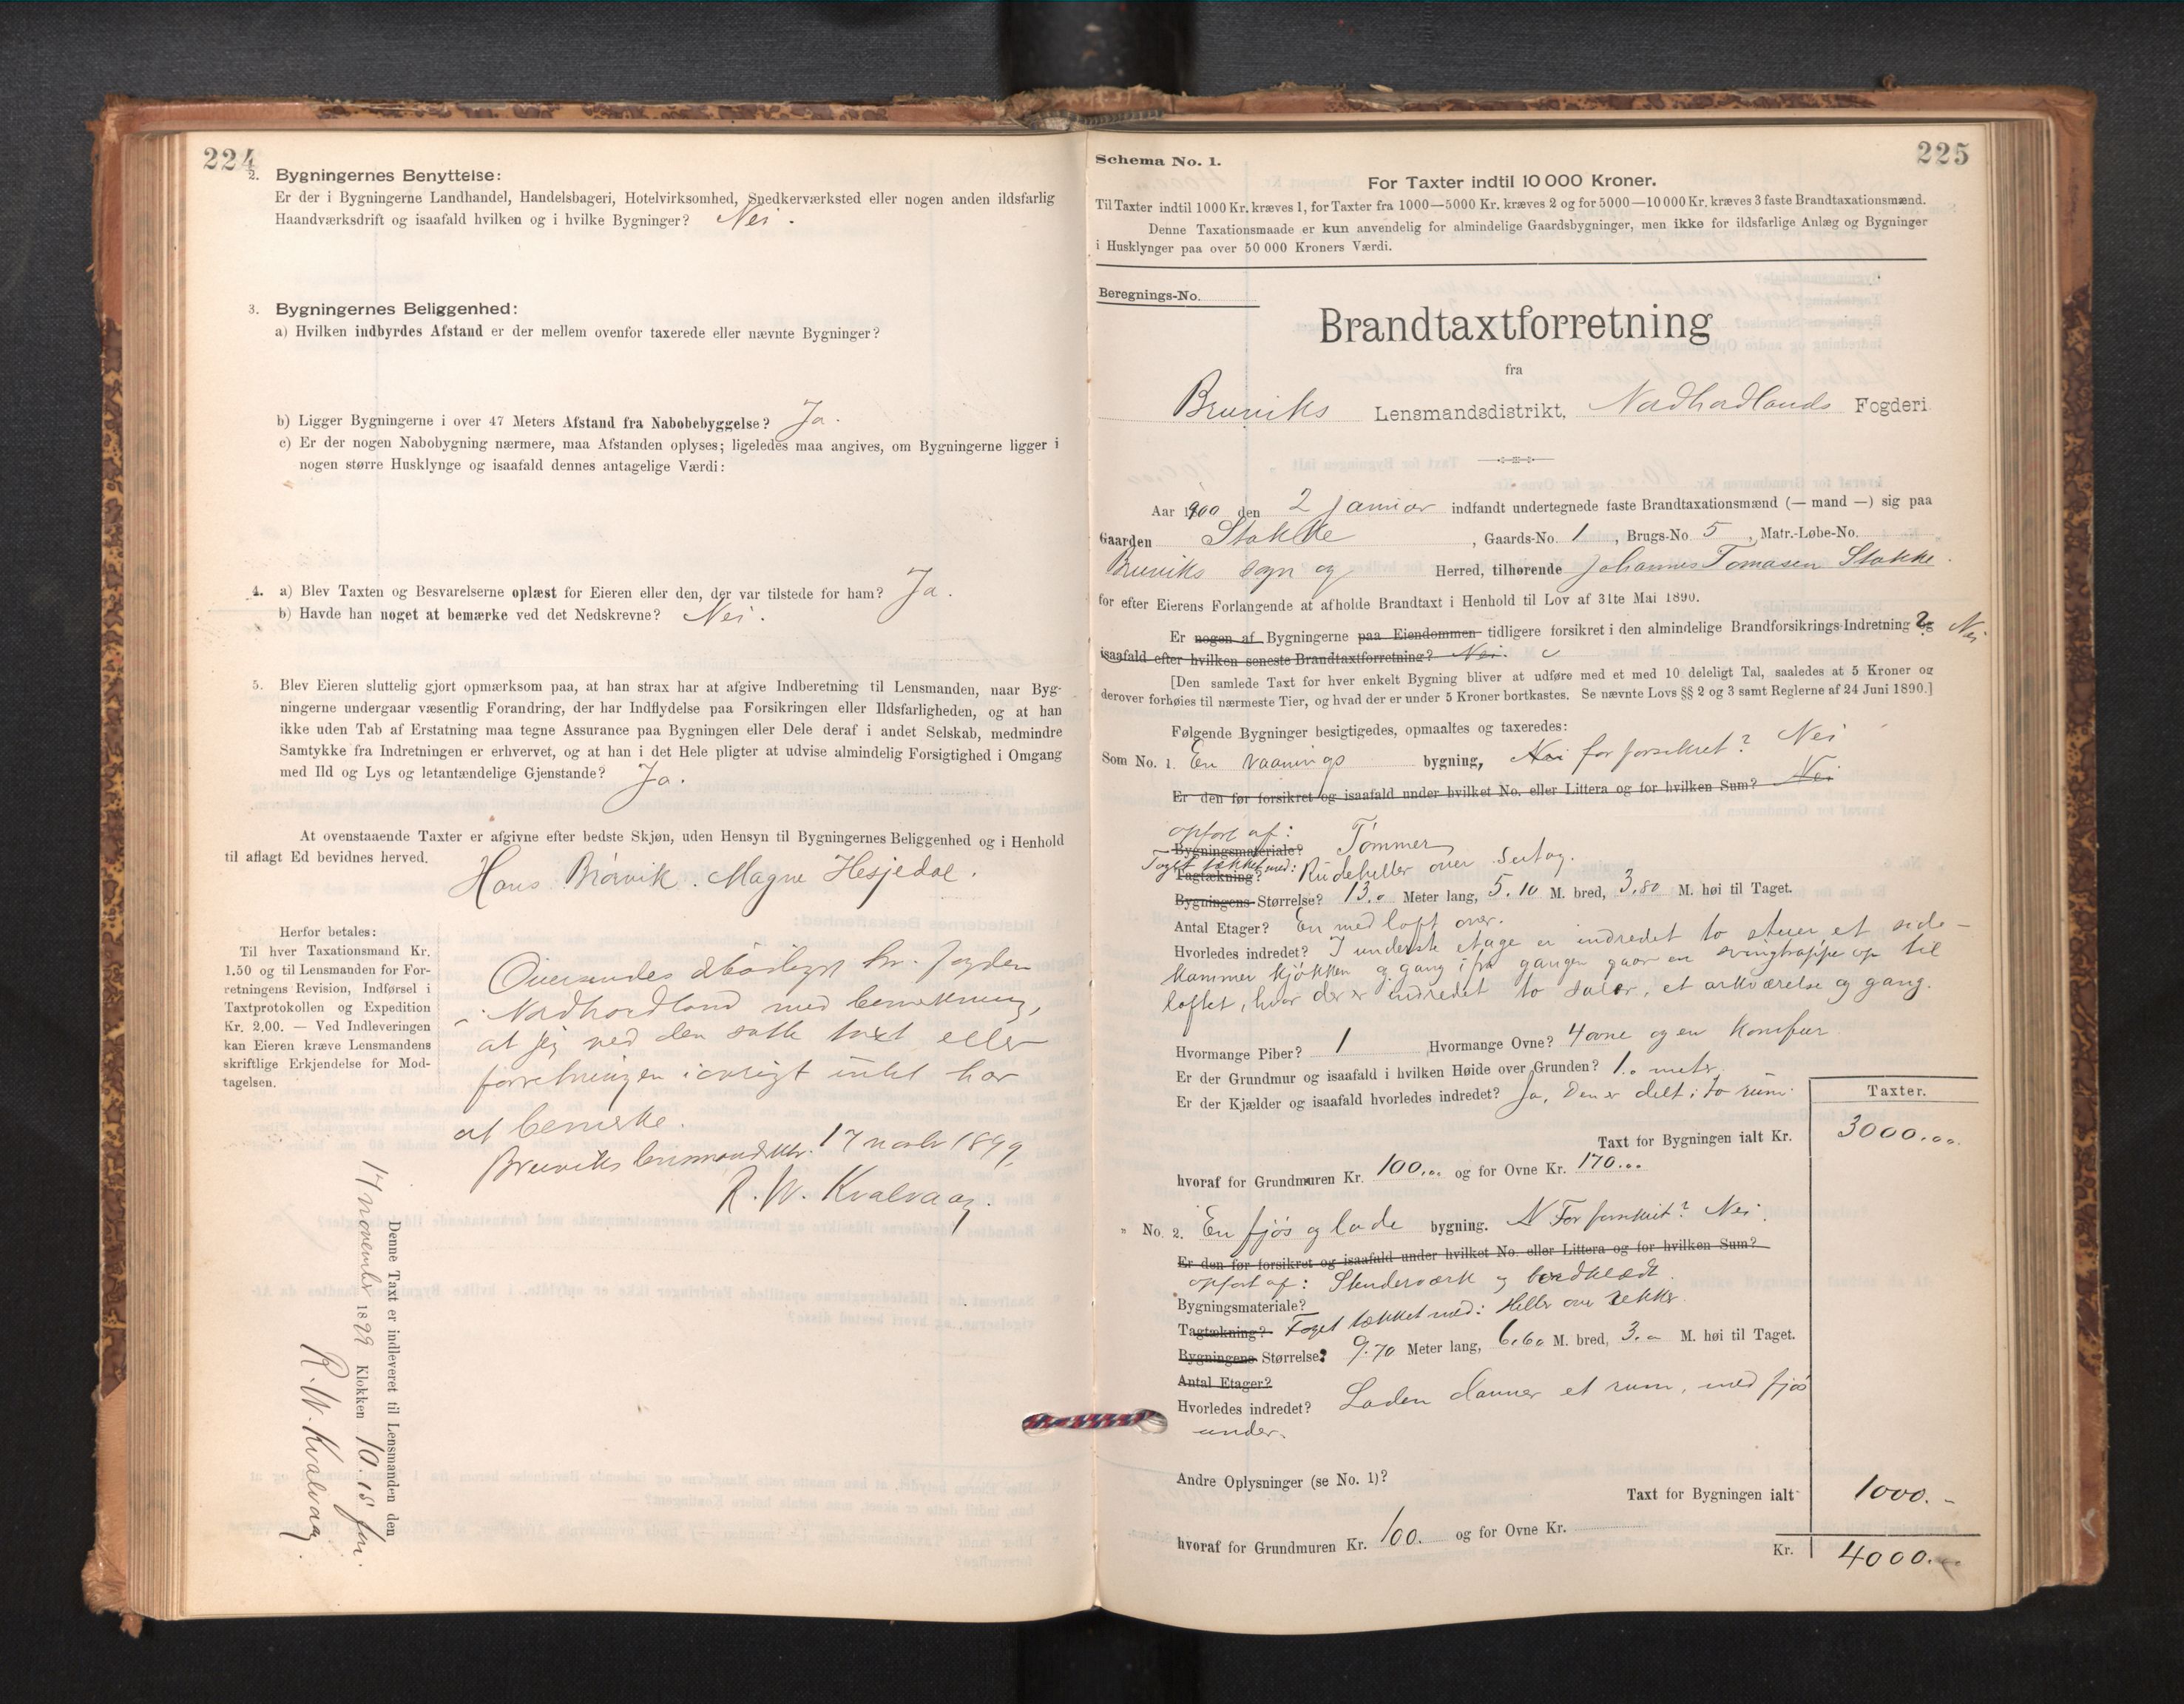 224
2. Bygningernes Benyttelse:
Er der i Bygningerne Landhandel, Handelsbageri, Hotelvirksomhed, Snedkerværksted eller nogen anden ildsfarlig
Haandværksdrift og isaafald hvilken og i hvilke Bygninger? Nei.
3. Bygningernes Beliggenhed:
a) Hvilken indbyrdes Afstand er der mellem ovenfor taxerede eller nævnte Bygninger?
b) Ligger Bygningerne i over 47 Meters Afstand fra Nabobebyggelse? Ja.
c) Er der nogen Nabobygning nærmere, maa Afstanden oplyses; ligeledes maa angives, om Bygningerne ligger i
nogen større Husklynge og isaafald dennes antagelige Værdi:
4. a) Blev Taxten og Besvarelserne oplæst for Eieren eller den, der var tilstede for ham? Ja.
b) Havde han noget at bemærke ved det Nedskrevne? Nei.
5. Blev Eieren sluttelig gjort opmærksom paa, at han strax har at afgive Indberetning til Lensmanden, naar Byg-
ningerne undergaar væsentlig Forandring, der har Indflydelse paa Forsikringen eller Ildsfarligheden, og at han
ikke uden Tab af Erstatning maa tegne Assurance paa Bygningen eller Dele deraf i andet Selskab, medmindre
Samtykke fra Indretningen er erhvervet, og at han i det Hele pligter at udvise almindelig Forsigtighed i Omgang
med Ild og Lys og letantændelige Gjenstande? Ja.
At ovenstaaende Taxter er afgivne efter bedste Skjøn, uden Hensyn til Bygningernes Beliggenhed og i Henhold
til aflagt Ed bevidnes herved.
Hans Brørvik. Magne Hesjedal.
Herfor betales:
Til hver Taxationsmand Kr.
1.50 og til Lensmanden for For-
retningens Revision, Indførsel i
Taxtprotokollen og Expedition
Kr. 2,00. — Ved Indleveringen
kan Eieren kræve Lensmandens
skriftlige Erkjendelse for Mod-
tagelsen.
Oversendes ærbødigst hr. fogden
i Nordhordland med bemerkning,
at jeg ved den satte taxt eller
forretningen iøvrigt intet har
at bemerke.
Bruviks lensmandsktr. 17 novbr 1899.
R. W. Kvalvaag.
Denne Taxt er indleveret til Lensmanden den
17 november 1899 Klokken 10.15 fm.
R. W. Kvalvaag.
225
Schema No. 1.
For Taxter indtil 10 000 Kroner.
Til Taxter indtil 1000 Kr. kræves 1, for Taxter fra 1000—5000 Kr. kræves 2 og for 5000—10 000 Kr. kræves 3 faste Brandtaxationsmænd.
Denne Taxationsmaade er kun anvendelig for almindelige Gaardsbygninger, men ikke for ildsfarlige Anlæg og Bygninger
i Husklynger paa over 50 000 Kroners Værdi.
Beregnings-No.
Brandtaxtforretning
fra
Bruviks Lensmandsdistrikt, Nordhordlands Fogderi
Aar 1900 den 2 januar indfandt undertegnede faste Brandtaxationsmænd (— mand —) sig paa
Gaarden Stakke, Gaards-No. 1, Brugs-No. 5, Matr.-Løbe-No.
Bruviks sogn og Herred, tilhørende Johannes Tomasen Stakke.
for efter Eierens Forlangende at afholde Brandtaxt i Henhold til Lov af 31te Mai 1890.
Er nogen af Bygningerne paa Eiendommen tidligere forsikret i den almindelige Brandforsikrings-Indretning og ? Nei
isaafald efter hvilken seneste Brandtaxtforretning? Nei.
[Den samlede Taxt for hver enkelt Bygning bliver at udføre med et med 10 deleligt Tal, saaledes at 5 Kroner og
derover forhøies til nærmeste Tier, og hvad der er under 5 Kroner bortkastes. Se nævnte Lovs §§ 2 og 3 samt Reglerne af 24 Juni 1890.]
Følgende Bygninger besigtigedes, opmaaltes og taxeredes:
Som No. 1. En vaanings bygning, Nei før forsikret? Nei
Er den før forsikret og isaafald under hvilket No. eller Littera og for hvilken Sum? Nei
opført af:
Bygningsmateriale? Tømmer
Taget tækket med:
Tagtækning? Rudeheller over sutag.
Bygningens Størrelse? 13.0 Meter lang, 5.10 M. bred, 3.80 M. høi til Taget.
Antal Etager? En med loft over.
Hvorledes indredet? I underste etage er indredet to stuer et side-
kammer kjøkken og gang ifra gangen gaar en svingtrappe op til
loftet, hvor der er indredet to saler, et arkværelse og gang.
Hvormange Piber? 1 Hvormange Ovne? 4 ovne og en komfur
Er der Grundmur og isaafald i hvilken Høide over Grunden? 1.0 meter
Er der Kjælder og isaafald hvorledes indredet? Ja, Den er delt i to rum.
Taxter.
Taxt for Bygningen ialt Kr. 3000.00.
hvoraf for Grundmuren Kr. 100.00 og for Ovne Kr. 170.00
" No. 2. En fjøs og lade bygning. N Før forsikret? Nei.
Er den før forsikret og isaafald under hvilket No. eller Littera og for hvilken Sum?
opført af: Stenderværk og bordklædt.
Bygningsmateriale?
Tagtækning? Taget tækket med: Heller over rekker.
Bygningens Størrelse? 9.70 Meter lang, 6.60 M. bred, 3.0 M. høi til Taget.
Antal Etager?
Hvorledes indredet? Laden danner et rum, med fjøs
under.
Andre Oplysninger (se No. 1)?
Taxt for Bygningen ialt 1000.-
hvoraf for Grundmuren Kr. 100. og for Ovne Kr.
Kr. 4000.00